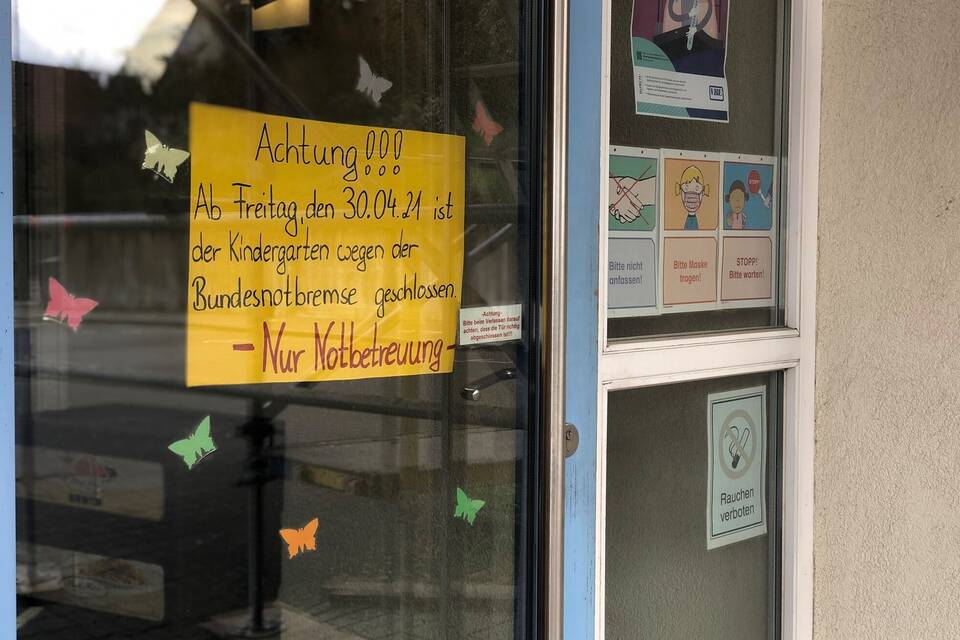 Achtung!!!
Ab Freitag, den 30.04.21 ist
der Kindergarten wegen der
Bundesnotbremse geschlossen.
- Nur Notbetreuung -
-Achtung-
Bitte beim Verlassen darauf
achten, dass die Tür richtig
abgeschlossen ist!!!
VBE
STOPP
Bitte nicht
anfassen!
Bitte Maske
tragen!
STOPP!
Bitte warten!
Rauchen
verboten